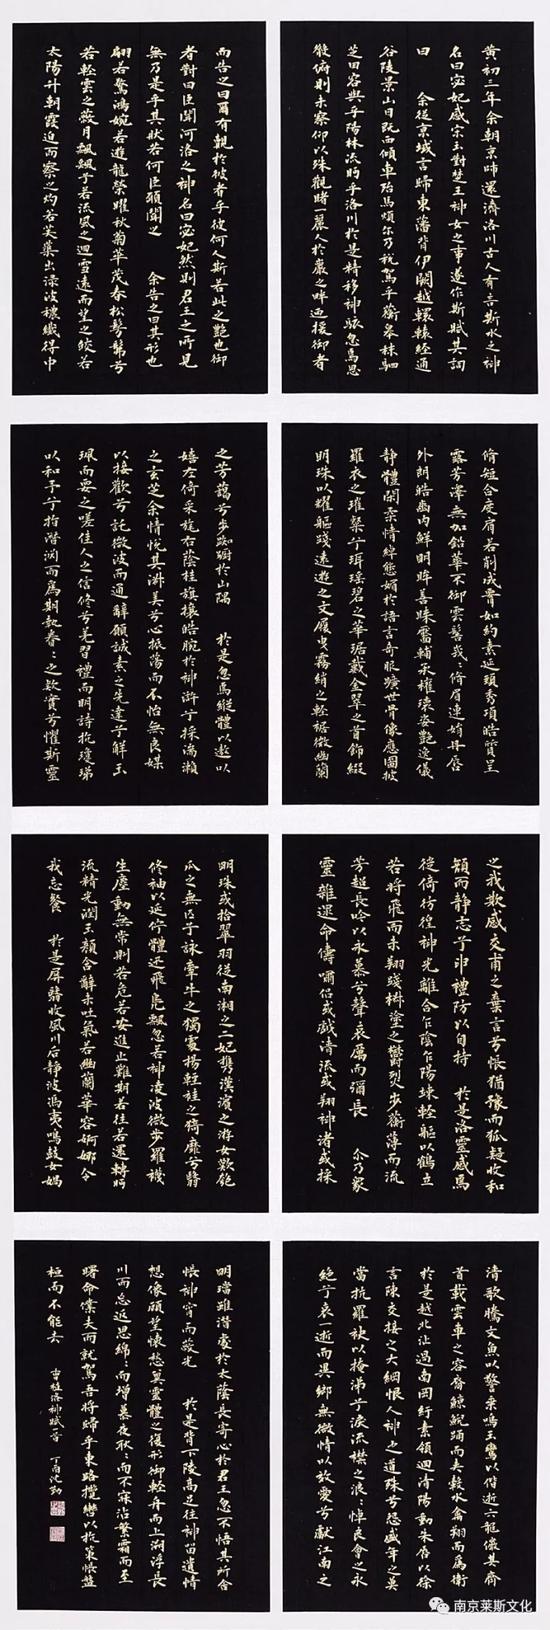 黄初三年余朝京師還濟洛川古人有言斯水之神
名曰宓妃感宋玉對楚王神女之事遂作斯賦其詞
曰 余從京域言歸東藩背伊闕越轘轅經通
谷陵景山日既西傾車殆馬煩尔乃税駕乎蘅皋秣駟
芝田容與乎陽林流眄乎洛川於是精移神駭忽焉思
散俯則未察仰以殊觀睹一麗人於巖之畔迺援御者
而告之曰爾有覿於彼者乎彼何人斯若此之艷也御
者對曰臣聞河洛之神名曰宓妃然則君王之所見
無乃是乎其狀若何臣願聞之 余告之曰其形也
翩若驚鴻婉若遊龍榮曜秋菊華茂春松髣髴兮
若輕雲之蔽月飄飄兮若流風之迴雪遠而望之皎若
太陽升朝霞迫而察之灼若芙蕖出渌波穠纖得中
脩短合度肩若削成腰如約素延頸秀項皓質呈
露芳澤無加鉛華不御雲髻峩〻脩眉連娟丹唇
外朗皓齒内鮮明眸善睞靨輔承權瓌姿艷逸儀
静體閑柔情綽態媚於語言奇服曠世骨像應圖披
羅衣之璀粲兮珥瑶碧之華琚戴金翠之首飾綴
明珠以耀軀踐遠遊之文履曳霧綃之輕裾微幽蘭
之芳藹兮步踟蹰於山隅 於是忽焉縱體以遨以
嬉左倚采旄右蔭桂旗攘皓腕於神滸兮採湍瀨
之玄芝余情悦其淑美兮心振蕩而不怡無良媒
以接歡兮託微波而通辭願誠素之先達兮解玉
珮而要之嗟佳人之信修兮羌習禮而明詩抗瓊珶
以和予兮指潛淵而爲期執眷〻之款實兮懼斯靈
之我欺感交甫之棄言兮悵猶豫而狐疑收和
顔而静志兮申禮防以自持 於是洛靈感焉
徙倚彷徨神光離合乍陰乍陽竦輕軀以鶴立
若將飛而未翔踐椒塗之鬱烈步蘅薄而流
芳超長吟以永慕兮聲哀厲而彌長 尔乃衆
靈雜遝命儔嘯侣或戲清流或翔神渚或採
明珠或拾翠羽從南湘之二妃携漢濱之游女歎匏
瓜之無匹兮詠牽牛之獨處揚輕袿之猗靡兮翳
修袖以延佇體迅飛鳧飄忽若神凌波微步羅襪
生塵動無常則若危若安進止難期若往若還轉眄
流精光潤玉顔含辭未吐氣若幽蘭華容婀娜令
我忘餐 於是屏翳收風川后静波馮夷鳴鼓女媧
清歌騰文魚以警乘鳴玉鸞以偕逝六龍儼其齊
首載雲車之容裔鯨鯢踊而夾轂水禽翔而爲衛
於是越北沚過南岡紆素領迴清陽動朱唇以徐
言陳交接之大綱恨人神之道殊兮怨盛年之莫
當抗羅袂以掩涕兮淚流襟之浪〻悼良會之永
絶兮哀一逝而異鄉無微情以效愛兮獻江南之
明璫雖潛處於太陰長寄心於君王忽不悟其所舍
悵神宵而蔽光 於是背下陵高足往神留遺情
想像顧望懷愁冀靈體之復形御輕舟而上溯浮長
川而忘返思綿〻而增慕夜耿〻而不寐沾繁霜而至
曙命僕夫而就駕吾將歸乎東路攬轡以抗策悵盤
桓而不能去 曹植洛神賦 丁酉
南京莱斯文化